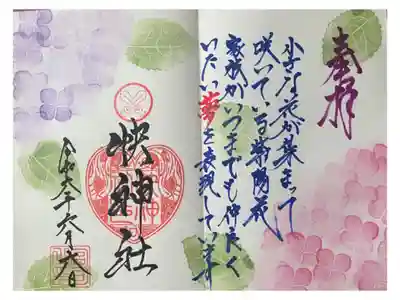 奉拝
小さな花が集まって
咲いている紫陽花
家族がいつまでも仲良く
いたい夢を表現しています
神社
令和六年六月六日